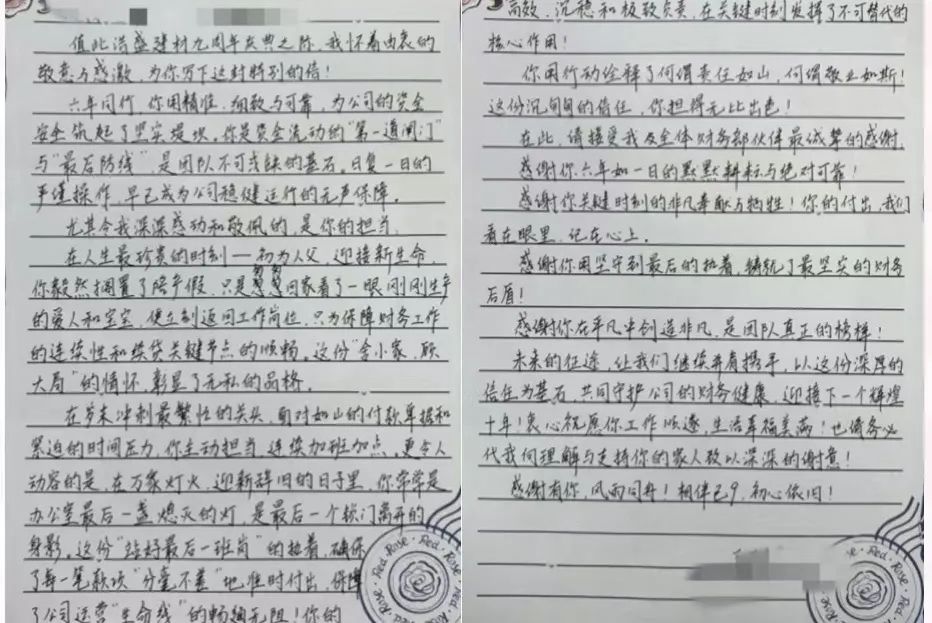 值此浩盛建材九周年庆典之际,我怀着由衷的
敬意与感激,为你写下这封特别的信!
六年同行,你用精准、细致与可靠,为公司的资金
安全筑起了坚实堤坝。你是资金流动的“第一道闸门”
与“最后防线”,是团队不可或缺的基石。日复一日的
严谨操作,早已成为公司稳健运行的无声保障。
尤其令我深深感动和敬佩的,是你的担当。
在人生最珍贵的时刻——初为人父,迎接新生命,
你毅然搁置了陪产假,只是匆匆回家看了一眼刚刚生产
的爱人和宝宝,便立刻返回工作岗位,只为保障财务工作
的连续性和续贷关键节点的顺畅。这份“舍小家,顾
大局”的情怀,彰显了无私的品格。
在岁末冲刺最繁忙的关头,面对如山的付款单据和
紧迫的时间压力,你主动担当,连续加班加点。更令人
动容的是,在万家灯火,迎新辞旧的日子里,你常常是
办公室最后一盏熄灭的灯,是最后一个锁门离开的
身影。这份“站好最后一班岗”的执着,确保
了每一笔款项“分毫不差”地准时付出,保障
了公司运营“生命线”的畅通无阻!你的
高效、沉稳和极致负责,在关键时刻发挥了不可替代的
核心作用!
你用行动诠释了何谓责任如山,何谓敬业如斯!
这份沉甸甸的信任,你担得无比出色!
在此,请接受我及全体财务部伙伴最诚挚的感谢。
感谢你六年如一日的默默耕耘与绝对可靠!
感谢你关键时刻的非凡奉献与牺牲!你的付出,我们
看在眼里,记在心上。
感谢你用坚守到最后的执着,铸就了最坚实的财务
后盾!
感谢你在平凡中创造非凡,是团队真正的榜样!
未来的征途,让我们继续并肩携手,以这份深厚的
信任为基石,共同守护公司的财务健康,迎接下一个辉煌
十年!衷心祝愿你工作顺遂,生活幸福美满!也请务必
代我向理解与支持你的家人致以深深的谢意!
感谢有你,风雨同舟!相伴已9,初心依旧!
Red Rose · Red Rose
Rose · Red
Rose